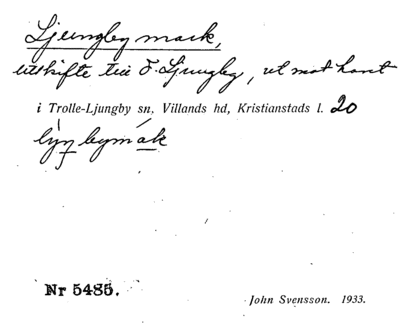 Ljungby mark,
utskifte till T. Ljungby, ut mot havet
i Trolle-Ljungby sn, Villands hd, Kristianstads l. 20
Nr 5485.
John Svensson. 1933.